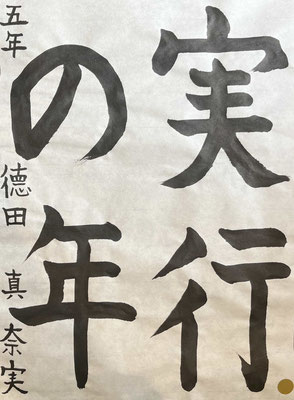 実行
の年
五年 徳田 真奈実